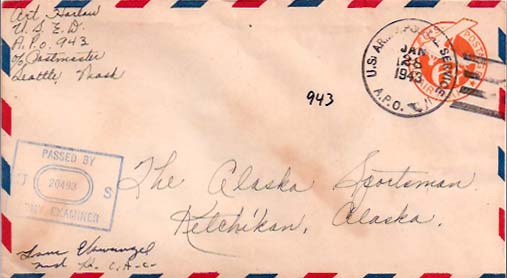 Art Harlow
U.S.E.D.
A.P.O. 943
c/o Postmaster
Seattle, Wash
U.S. ARMY POSTAL SERVICE
JAN
28
1943
A.P.O.
943
PASSED BY
20493
S
ARMY EXAMINER
The Alaska Sportsman
Ketchikan, Alaska.